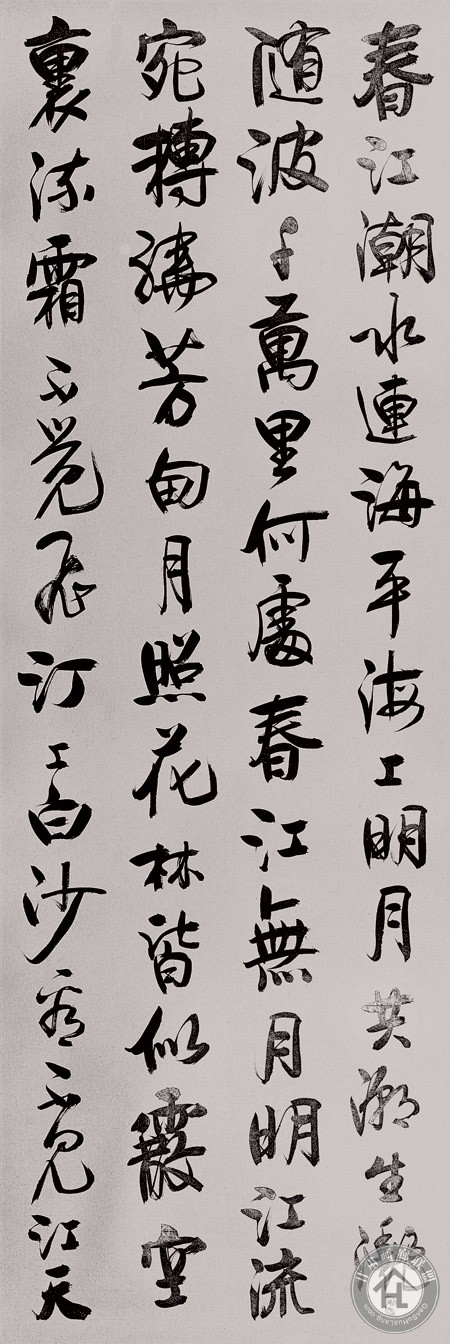 春江潮水連海平海上明月共潮生
随波千萬里何處春江無月明江流
宛轉繞芳甸月照花林皆似霰空
裏流霜不覺飛汀上白沙看不見江天
GanSuHuaLang.com